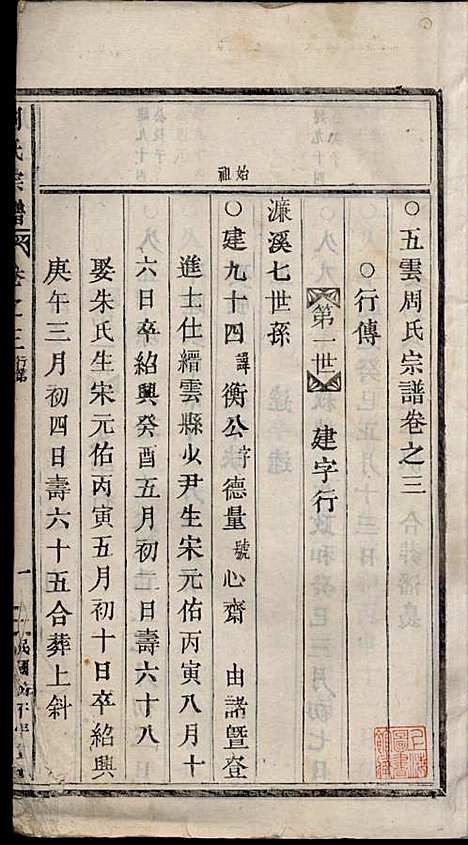 ○五雲周氏宗譜卷之三
○行傳
第一世 建字行
濂溪七世孫
始祖
○建九十四諱衡公字德量號心齋 由諸暨登
進士仕縉雲縣少尹生宋元佑丙寅八月十
六日卒紹興癸酉五月初二日壽六十八
娶朱氏生宋元佑丙寅五月初十日卒紹興
庚午三月初四日壽六十五合葬上斜
周氏宗譜 卷之三 行傳 一